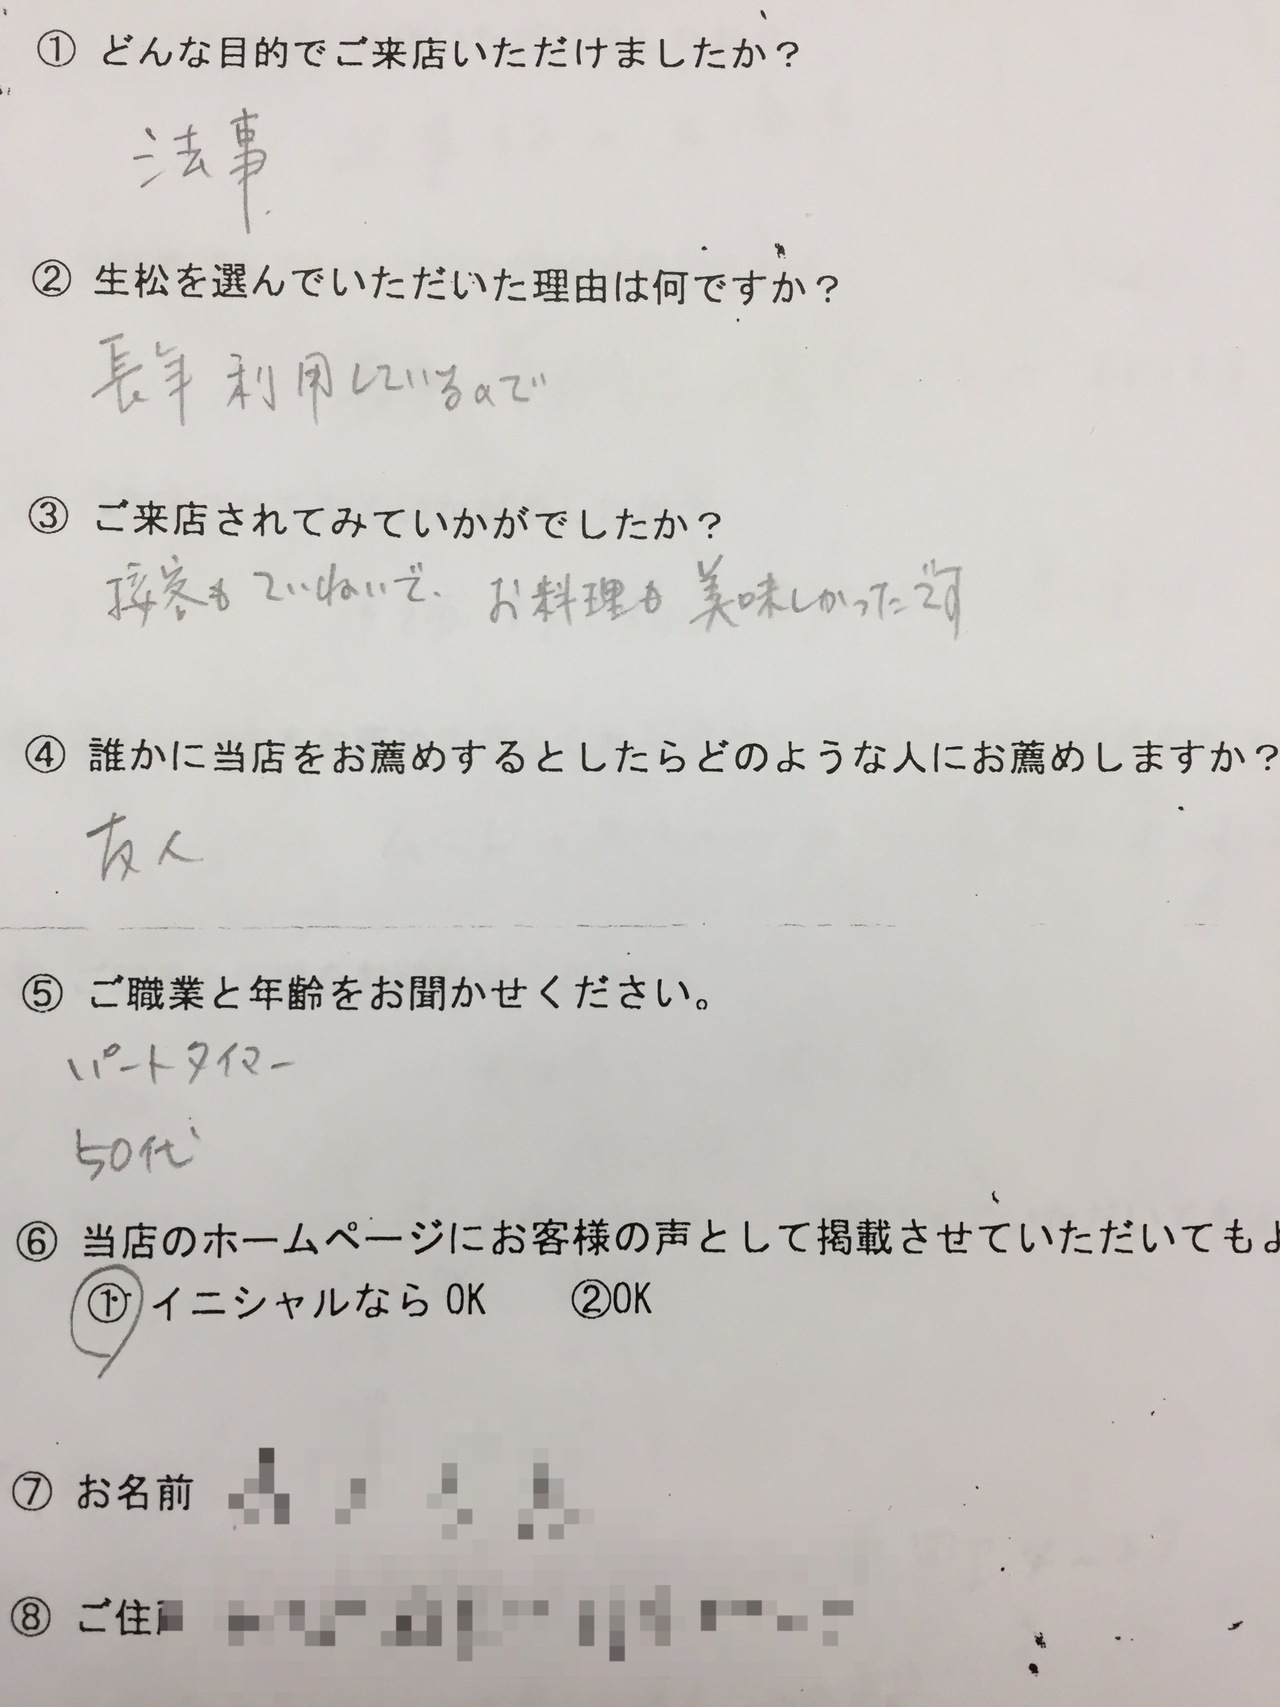 ① どんな目的でご来店いただけましたか？
法事
② 生松を選んでいただいた理由は何ですか？
長年利用しているので
③ ご来店されてみていかがでしたか？
接客もていねいで、お料理も美味しかったです
④ 誰かに当店をお薦めするとしたらどのような人にお薦めしますか？
友人
⑤ ご職業と年齢をお聞かせください。
パートタイマー
50代
⑥ 当店のホームページにお客様の声として掲載させていただいてもよ
① イニシャルなら OK ②OK
⑦ お名前
⑧ ご住